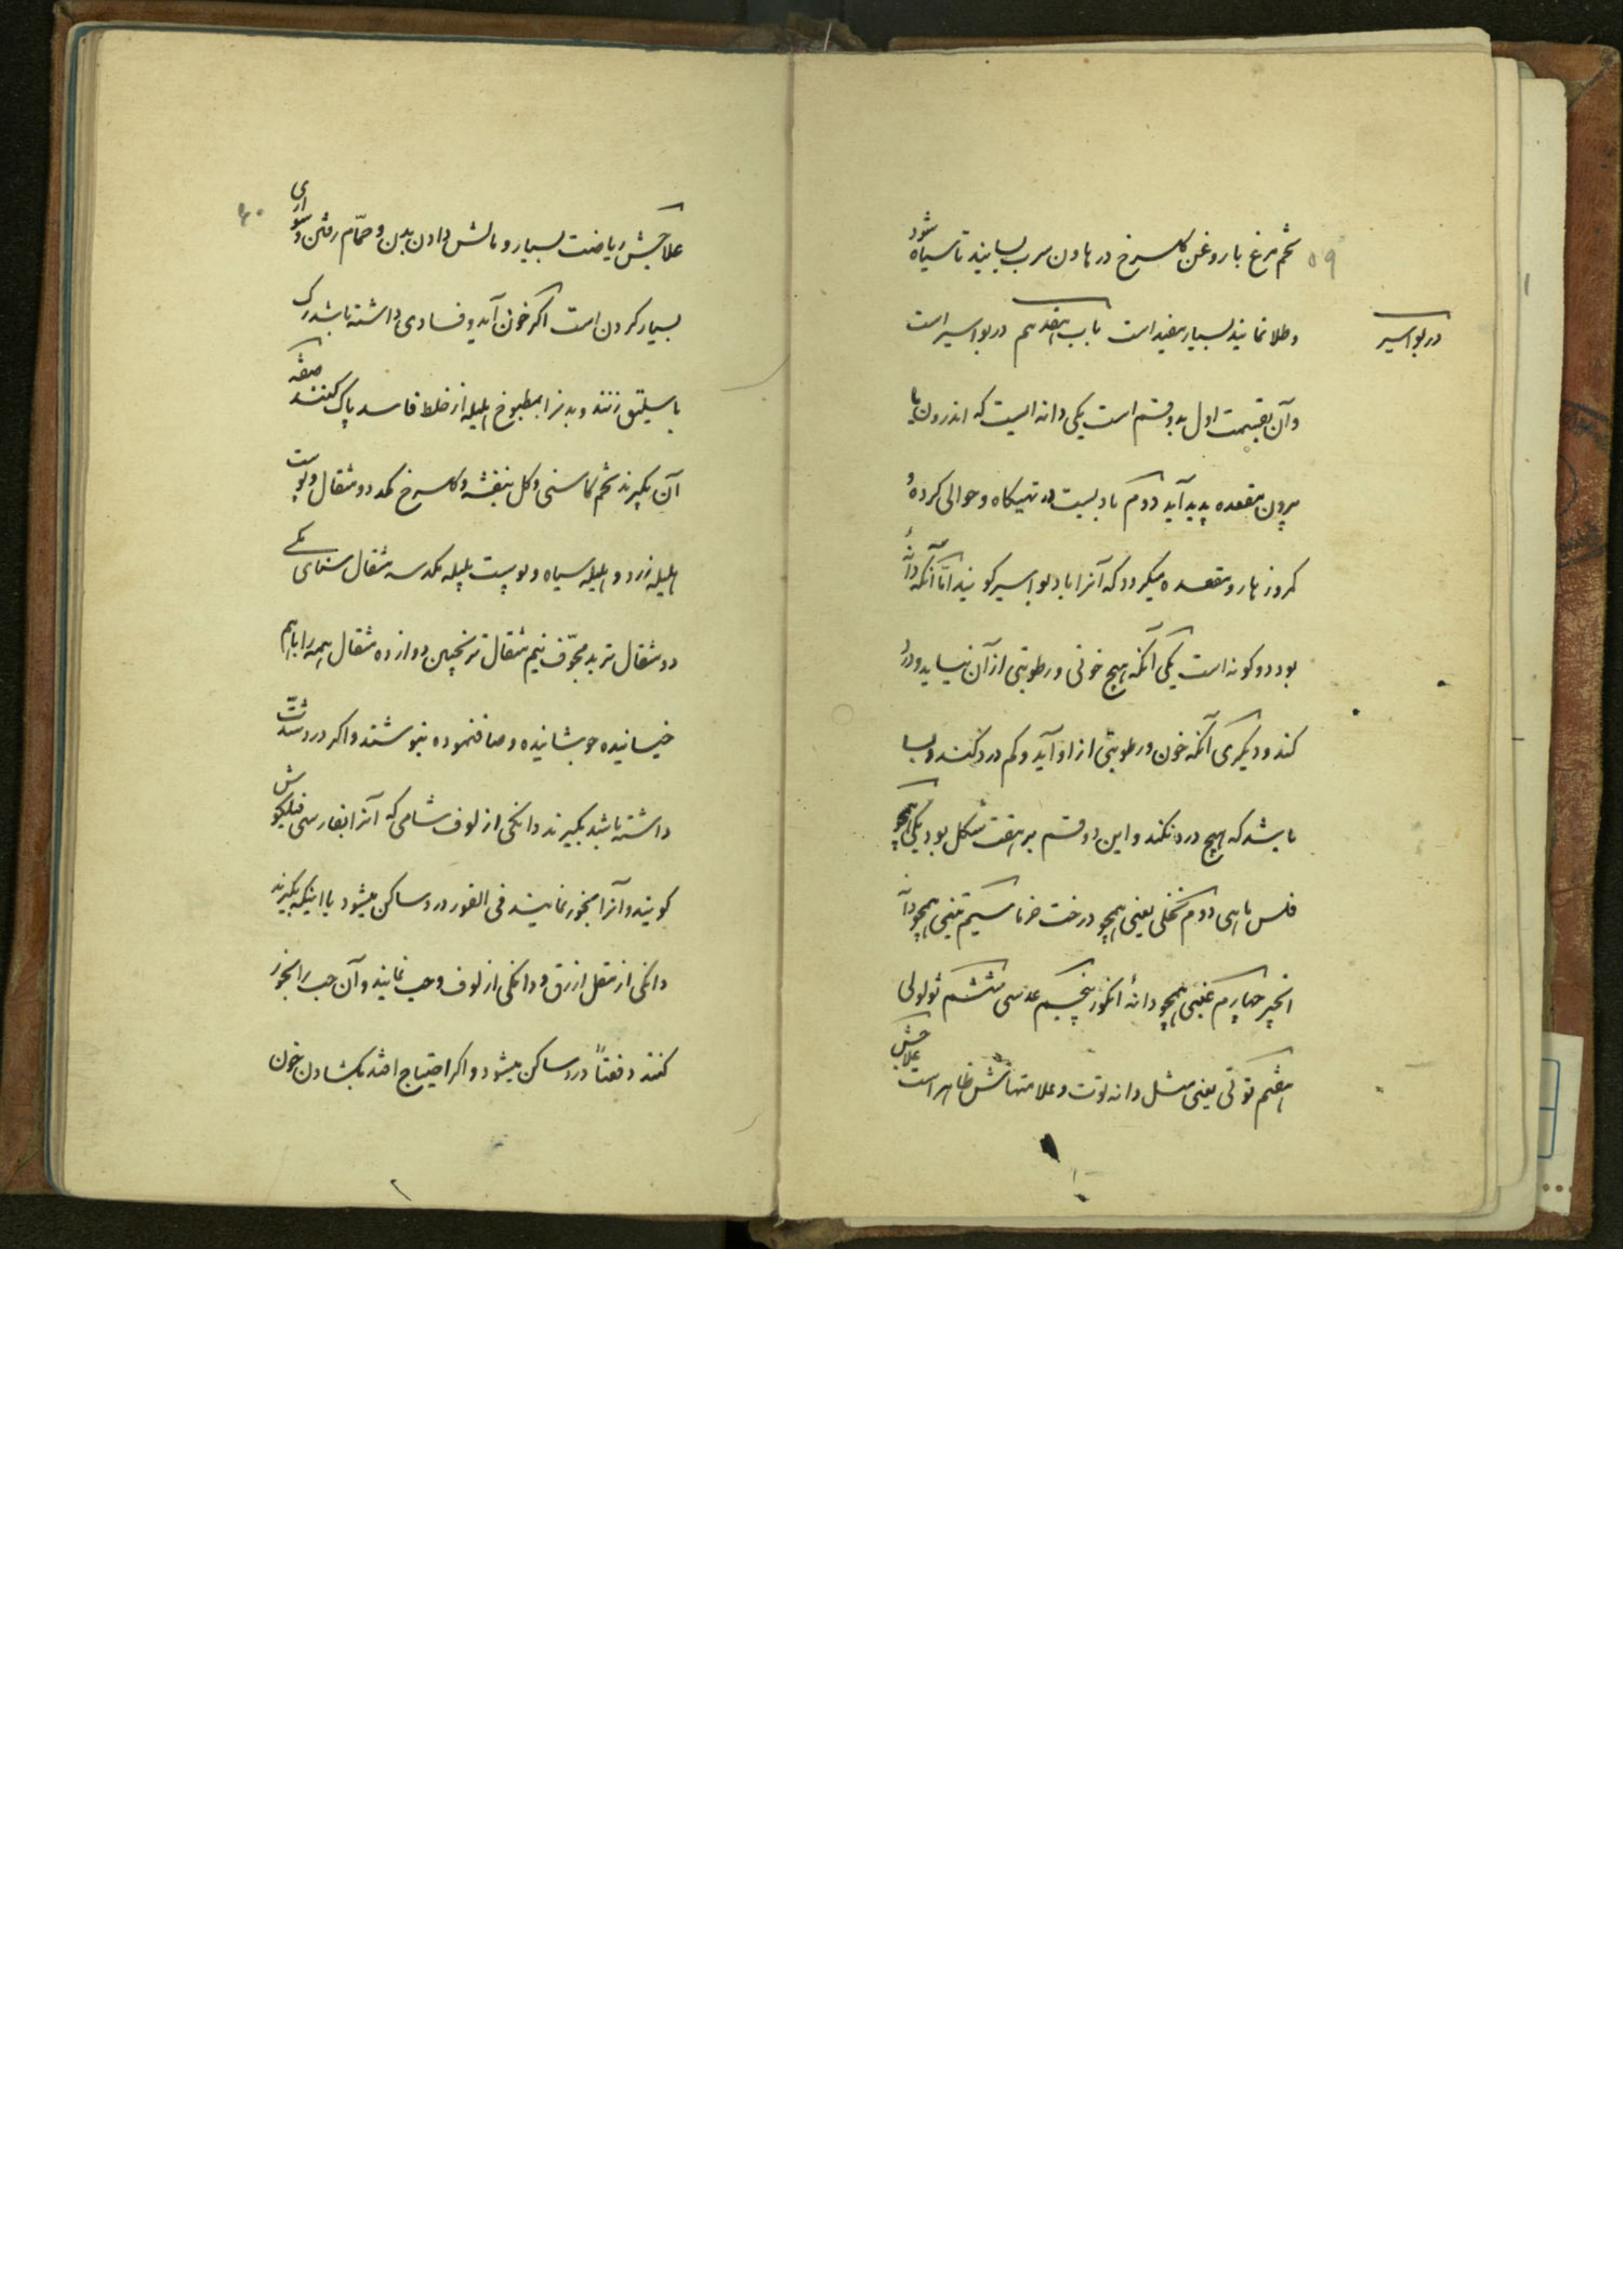 ۵۹
تخم مرغ با روغن کل سرخ در هاون سرب بسایند تا سیاه شود
در بواسیر
و طلا نمایند بسیار مفید است باب هفدهم در بواسیر است
و آن بقسمت اول بدو قسم است یکی دانه ایست که اندرون یا
بیرون مقعده پدید آید دوم بادیست در تهیکاه و حوالی کرده و
کرد زهار و مقعده میکردد که آنرا باد بواسیر کویند اما آنکه دانهٔ
بود دو کونه است یکی آنکه هیچ خونی و رطوبتی از آن نیاید و درد
کند و دیکری آنکه خون و رطوبتی از او آید و کم درد کند و بسا
باشد که هیچ درد نکند و این دو قسم بر هفت شکل بود یکی همچو
فلس ماهی دوم نخلی یعنی همچو درخت خرما سیم تینی همچو دانه
انجیر چهارم عنبی همچو دانهٔ انکور پنجم عدسی ششم ثولولی
هفتم توتی یعنی مثل دانه توت و علامتهاش ظاهر است علاجش
۶۰
علاجش ریاضت بسیار و مالش دادن بدن و حمّام رفتن و سواری
بسیار کردن است اکر خون آید و فسادی داشته باشد رک
باسلیق زنند و بدنرا بمطبوخ هلیله از خلط فاسد پاک کنند صفة
آن بکیرند تخم کاسنی و کل بنفشه و کل سرخ کمد دو مثقال و پوست
هلیله زرد و هلیله سیاه و پوست بلیله کمد سه مثقال سنای مکی
دو مثقال تربد مجوّف نیم مثقال ترنجبین دوازده مثقال همه را باهم
خیسانیده جوشانیده و صاف نموده بنوشند و اکر درد شدّت
داشته باشد بکیرند دانکی از لوف شامی که آنرا بفارسی فیلکوش
کویند و آنرا بخور نمایند فی الفور درد ساکن میشود یا اینکه بکیرند
دانکی از مقل ازرق و دانکی از لوف و حب نمایند و آن حب را بخور
کنند دفعتاً درد ساکن میشود و اکر احتیاج افتد بکشادن خون